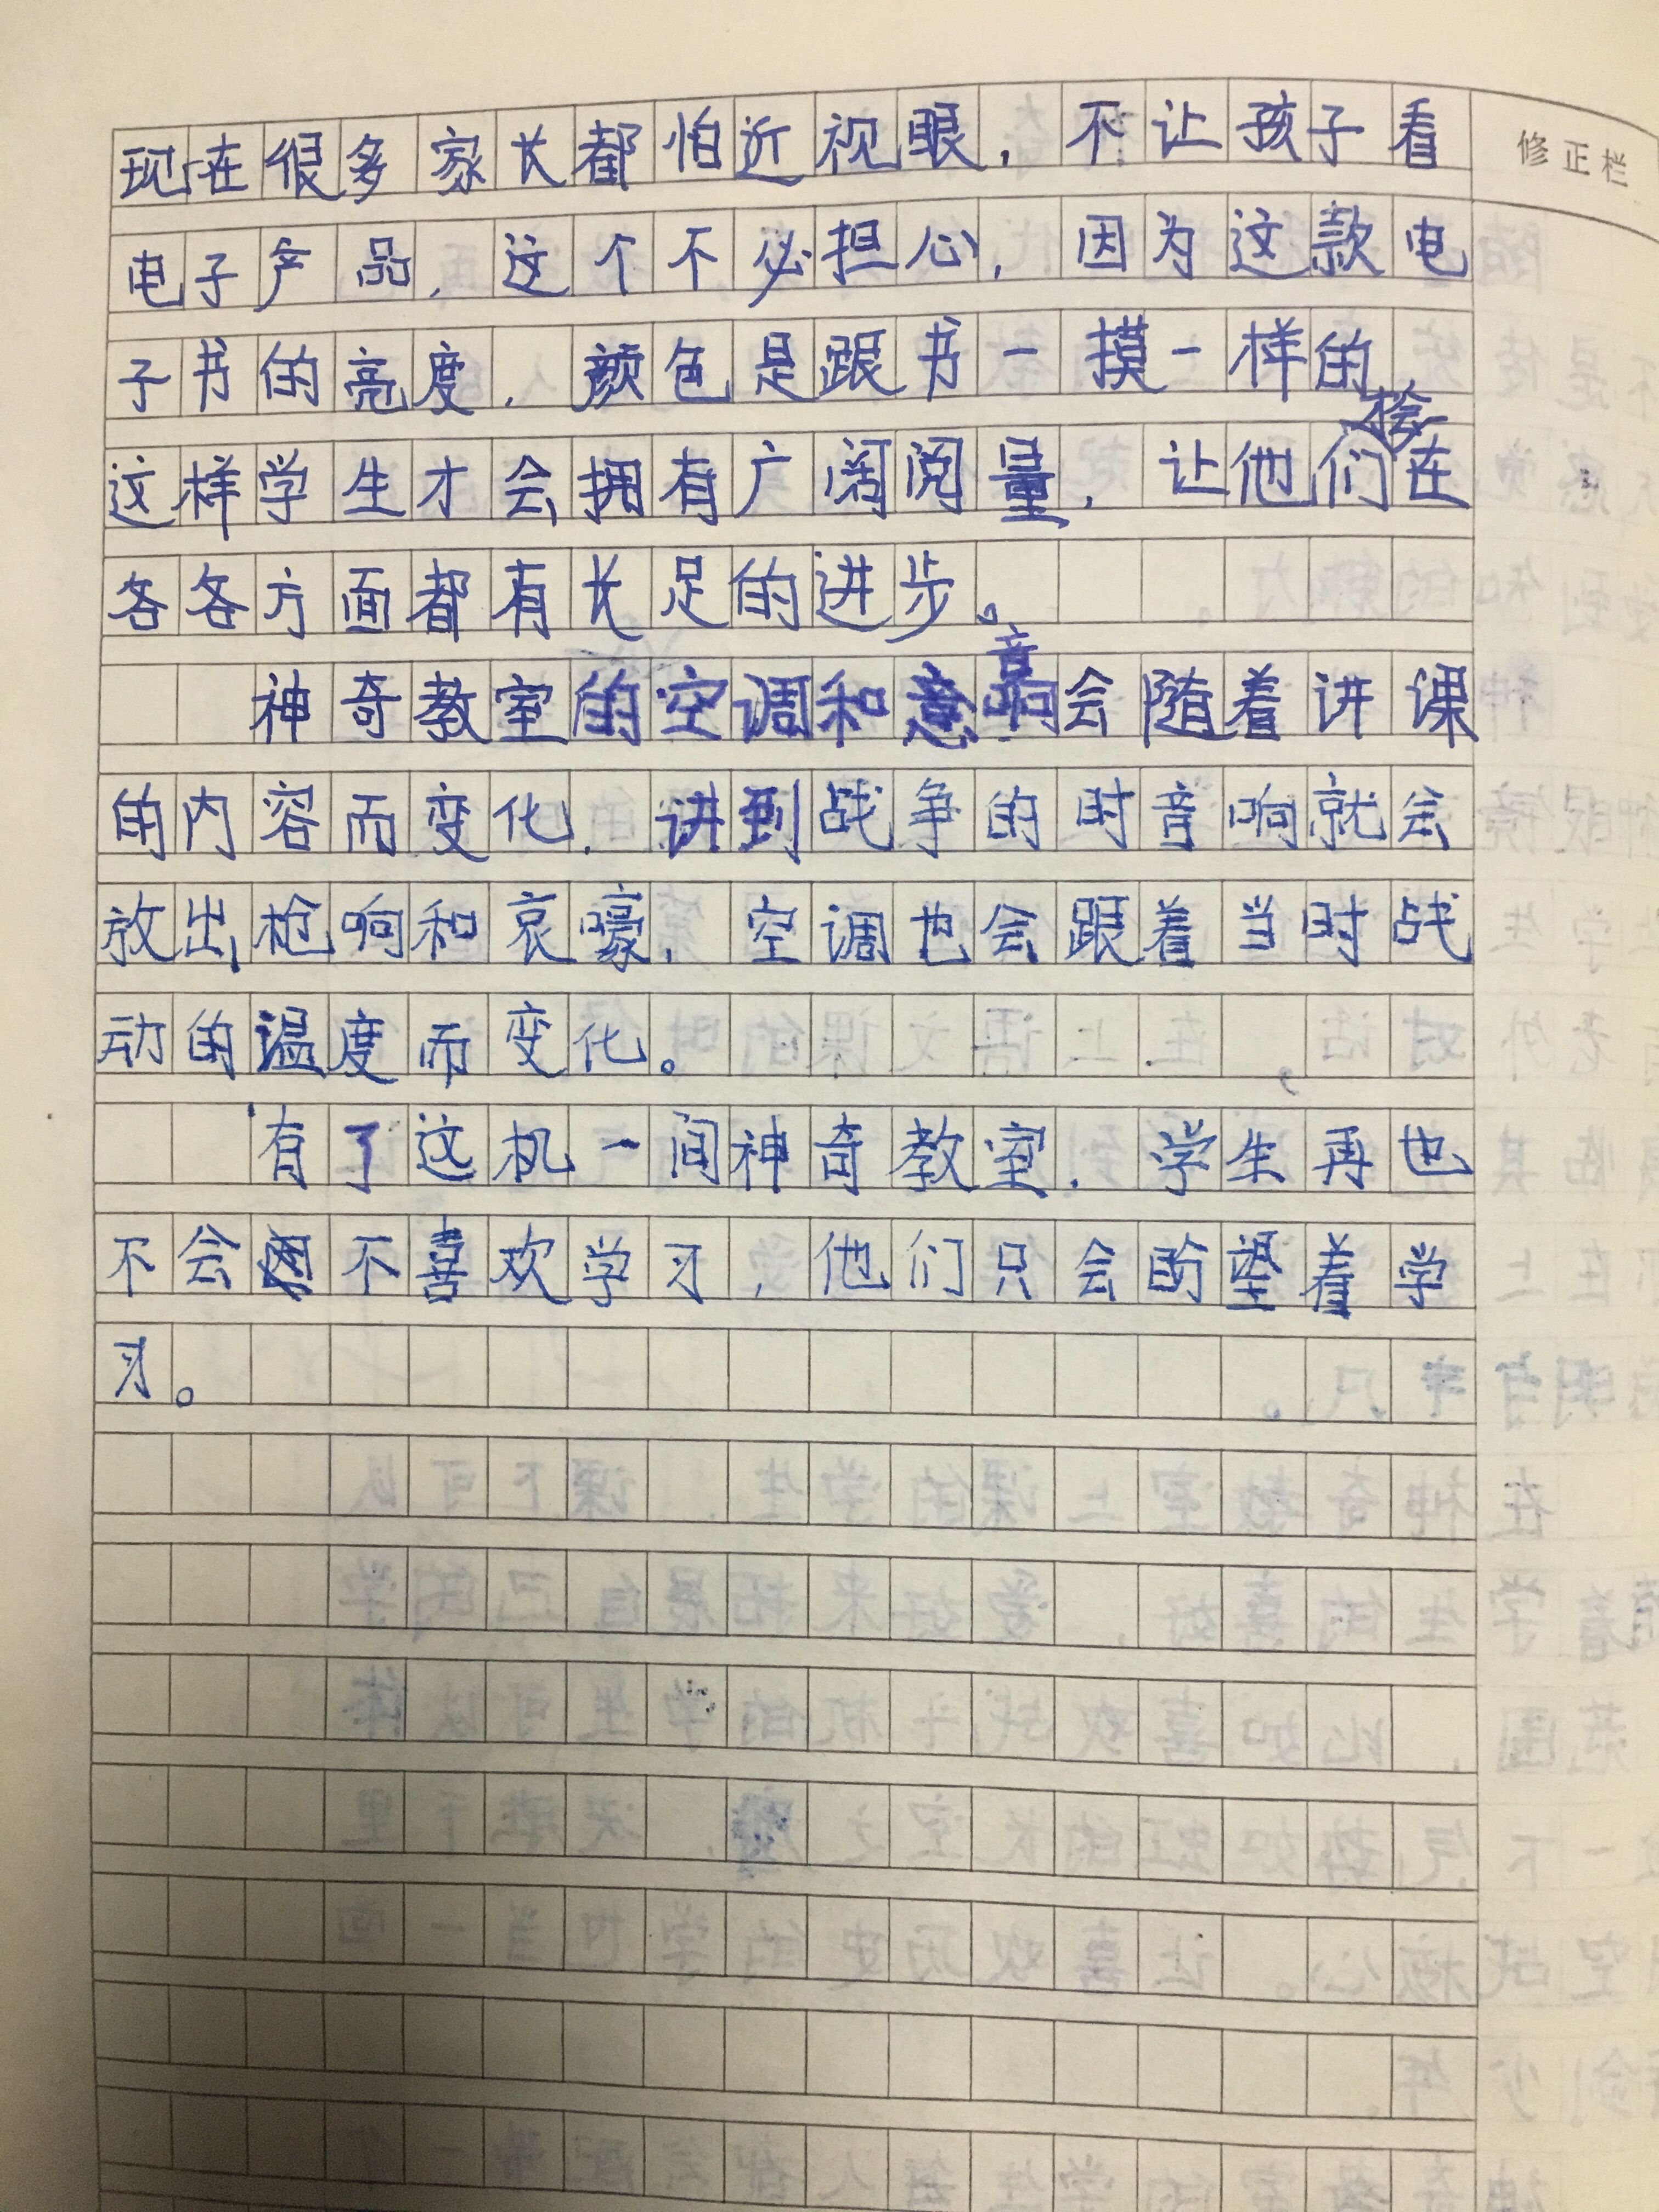 修正栏
现在很多家长都怕近视眼，不让孩子看
电子产品，这个不必担心，因为这款电
子书的亮度，颜色是跟书一摸一样的
这样学生才会拥有广阔阅量，让他们在
各各方面都有长足的进步。
神奇教室的空调和音响会随着讲课
的内容而变化，讲到战争的时音响就会
放出枪响和哀嚎，空调也会跟着当时战
动的温度而变化。
有了这机一间神奇教室，学生再也
不会不喜欢学习，他们只会盼望着学
习。